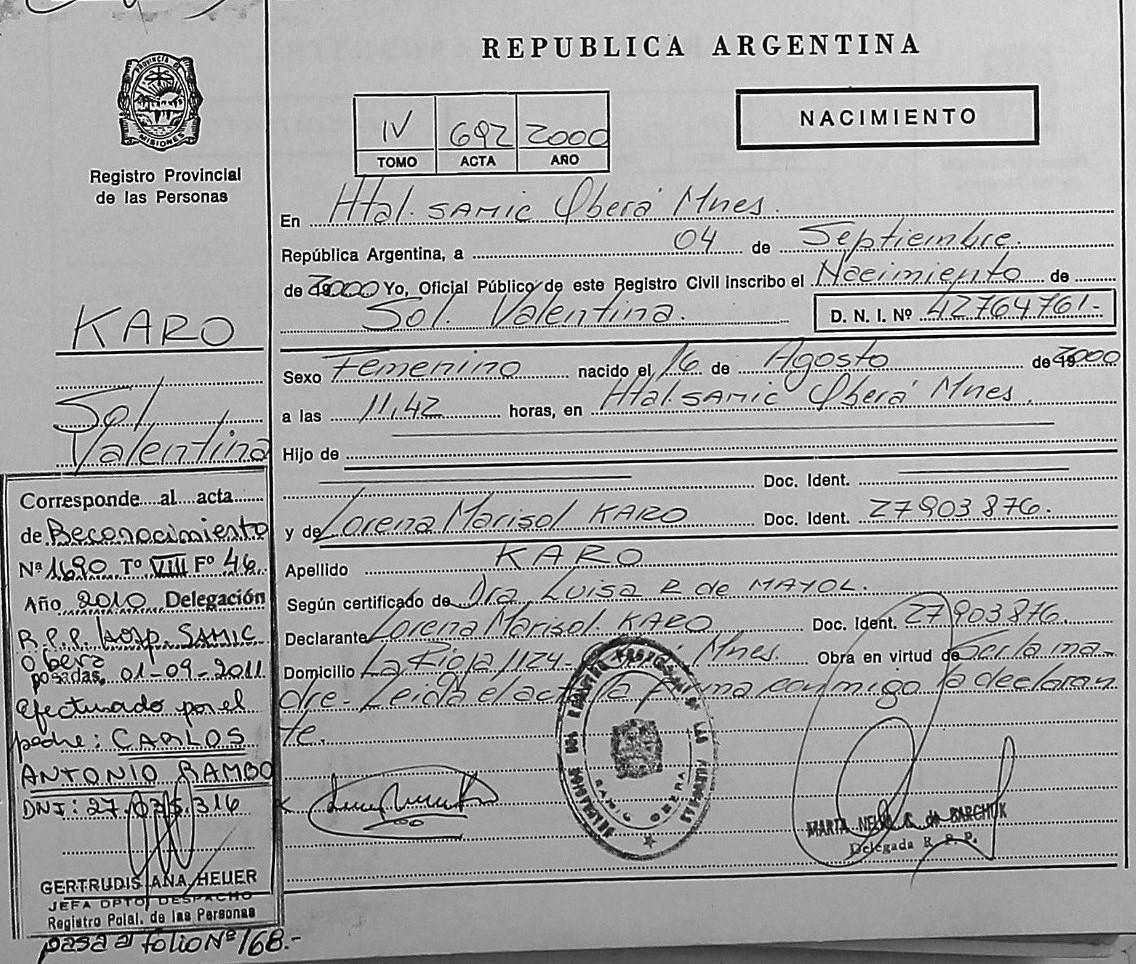 REPUBLICA ARGENTINA
PROVINCIA D MISIONES
Registro Provincial
de las Personas
IV 692 2000
TOMO ACTA AÑO
NACIMIENTO
En Htal. SAMIC Oberá Mnes.
República Argentina, a 04 de Septiembre.
de 2000 Yo, Oficial Público de este Registro Civil Inscribo el Nacimiento de
Sol. Valentina. D. N. I. Nº 42764761.-
Sexo Femenino nacido el 16 de Agosto de 2000
a las 11,42 horas, en Htal. SAMIC Oberá Mnes.
Hijo de
Doc. Ident.
y de Lorena Marisol KARO Doc. Ident. 27903876.
Apellido KARO
Según certificado de Dra Luisa R de MAYOL.
Declarante Lorena Marisol KARO Doc. Ident. 27903876.
Domicilio La Rioja 1124- Mnes. Obra en virtud de Ser la ma-
dre.- Leída el acta la firma conmigo la declaran
te.
MARTA de BARCHUK
Delegada R. P. P.
KARO
Sol
Valentina
Corresponde al acta
de Reconocimiento
Nº 1690 Tº VIII Fº 46
Año 2010 Delegación
R.P.P. Hosp. SAMIC
Oberá
posadas, 01-09-2011
efectuado por el
padre: CARLOS
ANTONIO RAMBO
DNI: 27.075.316
GERTRUDIS ANA HEUER
JEFA DPTO, DESPACHO
Registro Pcial. de las Personas
pasa al folio Nº 168.-